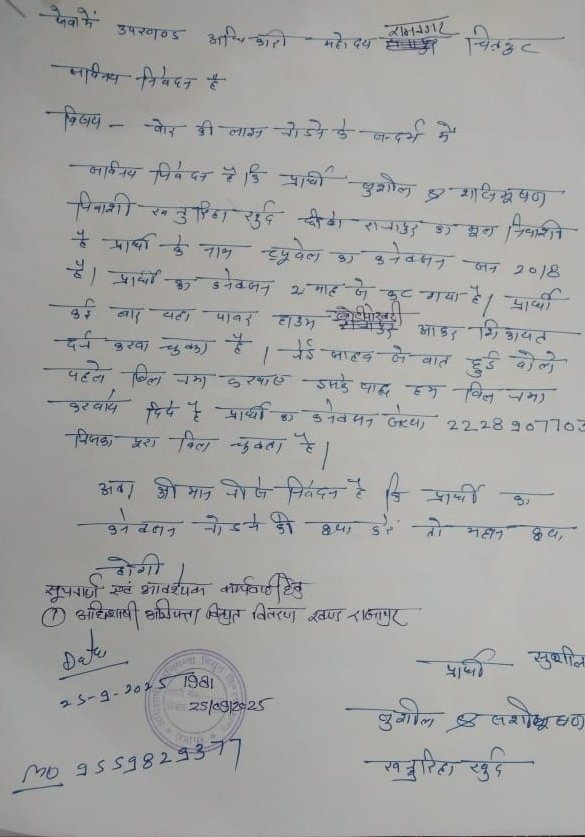 सेवा में उपखण्ड अधिकारी महोदय रामनगर चित्रकूट
सविनय निवेदन है
विषय - बोर की लाइन जोडने के सन्दर्भ में
सविनय निवेदन है कि प्रार्थी सुशील S/o शशिभूषण
निवाशी खजुरिहा खुर्द का मूल निवासी
है प्रार्थी के नाम ट्यूबेल का कनेक्शन सन 2018
है। प्रार्थी का कनेक्शन 2 माह से कट गया है। प्रार्थी
कई बार यहां पावर हाउस आकर शिकायत
दर्ज करवा चुका है। जेई साहब से बात हुई बोले
पहले बिल जमा करवाए इसके बाद हम बिल जमा
करवाय दिये है प्रार्थी का कनेक्शन संख्या 2228907703
जिसका पूरा बिल चुकता है।
अतः श्री मान जी से निवेदन है कि प्रार्थी का
कनेक्शन जोडने की कृपा करें तो महान कृपा
होगी।
सूचनार्थ एवं आवश्यक कार्यवाही हेतु
① अधिशाषी अभियन्ता विद्युत वितरण खण्ड राजापुर
Date
25-9-2025
1981
25/09/2025
MO 9559829377
प्रार्थी सुशील
सुशील S/o शशीभूषण
खजुरिहा खुर्द